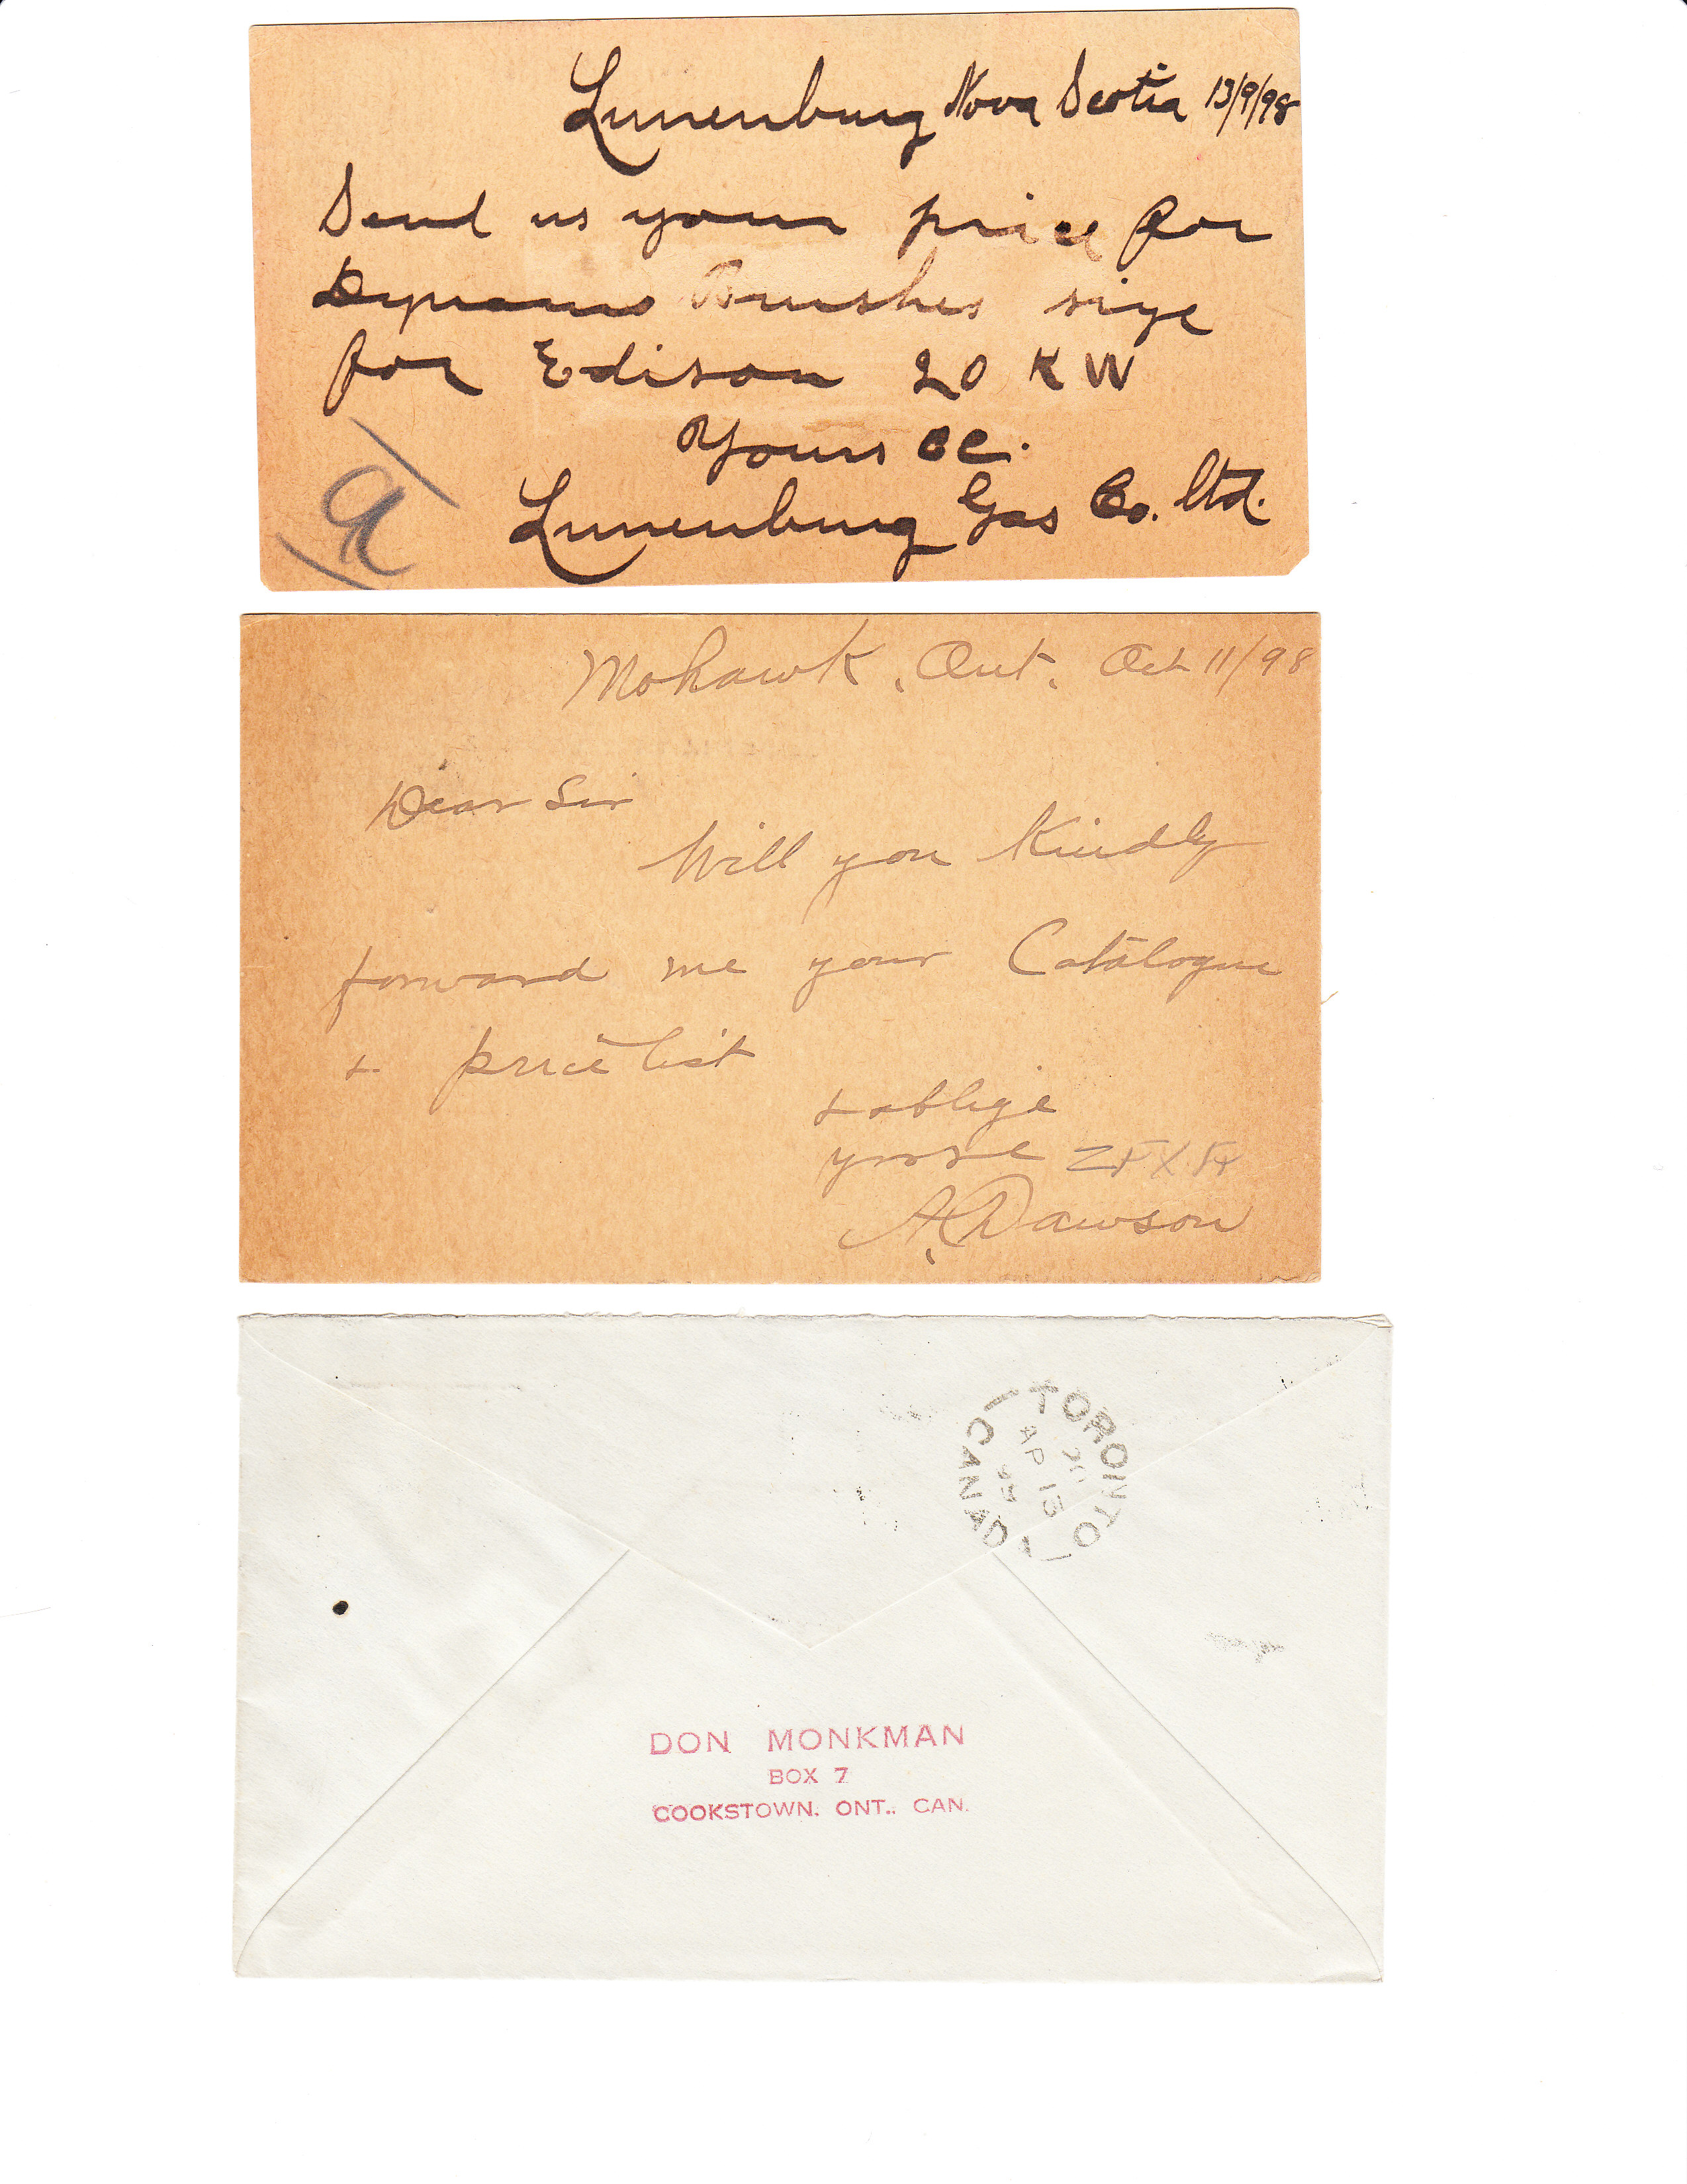 Lunenburg Nova Scotia 13/9/98
Send us your price for
Dynamo Brushes size
for Edison 20 KW
Yours &c.
Lunenburg Gas Co. Ltd.
a
Mohawk, Ont. Oct 11/98
Dear Sir
Will you Kindly
forward me your Catalogue
& price list
& oblige
yours
A. Dawson
TORONTO
AP 13
CANADA
DON MONKMAN
BOX 7
COOKSTOWN, ONT., CAN.